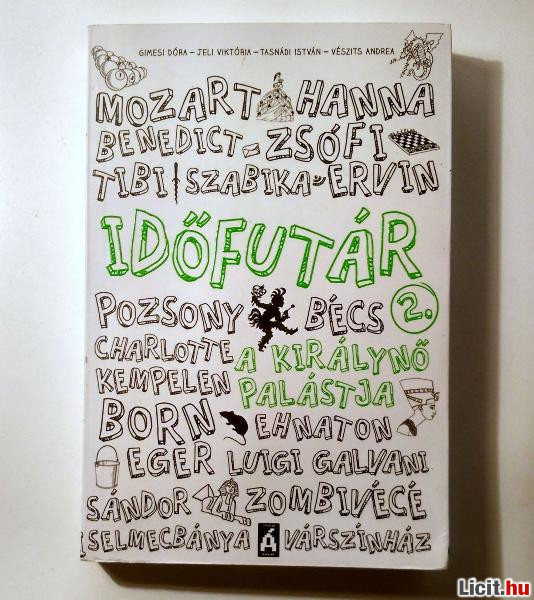 GIMESI DÓRA – JELI VIKTÓRIA – TASNÁDI ISTVÁN – VÉSZITS ANDREA
MOZART HANNA
BENEDICT ZSÓFI
TIBI SZABIKA ERVIN
IDŐFUTÁR
POZSONY BÉCS 2.
CHARLOTTE A KIRÁLYNŐ
KEMPELEN PALÁSTJA
BORN EHNATON
EGER LUIGI GALVANI
SÁNDOR ZOMBIVÉCÉ
SELMECBÁNYA Á VÁRSZÍNHÁZ
Licit.hu